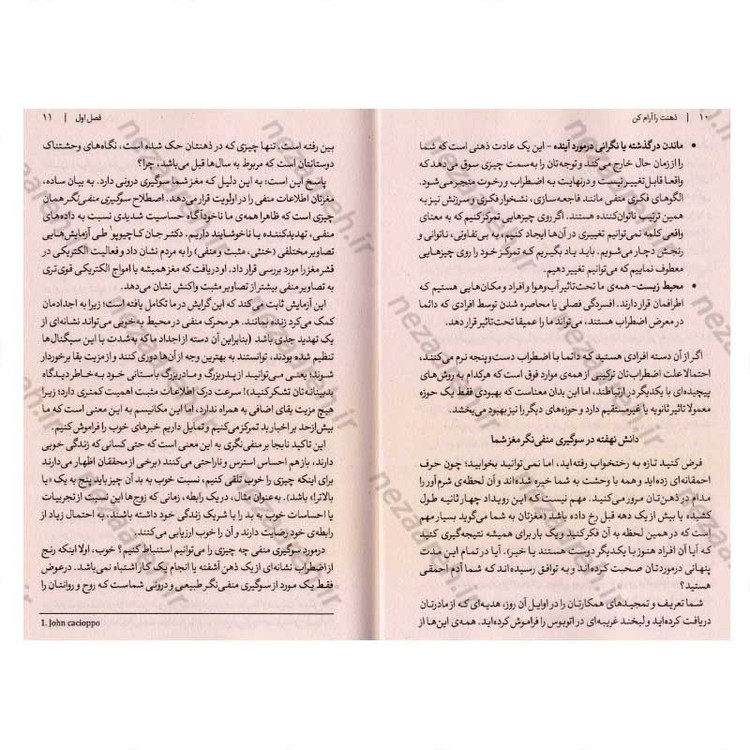 ۱۰ | ذهنت را آرام کن
• ماندن در گذشته یا نگرانی درمورد آینده - این یک عادت ذهنی است که شما
را از زمان حال خارج می‌کند و توجه‌تان را به‌سمت چیزی سوق می‌دهد که
واقعا قابل تغییر نیست و درنهایت به اضطراب و رخوت منجر می‌شود.
الگوهای فکری منفی مانند فاجعه‌سازی، نشخوار فکری و سرزنش نیز به
همین ترتیب ناتوان‌کننده هستند. اگر روی چیزهایی تمرکز کنیم که به معنای
واقعی کلمه نمی‌توانیم تغییری در آن‌ها ایجاد کنیم، به بی‌تفاوتی، ناتوانی و
رنجش دچار می‌شویم. باید یاد بگیریم که تمرکز خود را روی چیزهایی
معطوف نماییم که می‌توانیم تغییر دهیم.
• محیط زیست- همه‌ی ما تحت‌تاثیر آب‌وهوا و افراد و مکان‌هایی هستیم که
اطرافمان قرار دارند. افسردگی فصلی یا محاصره شدن توسط افرادی که دائما
در معرض اضطراب هستند، می‌تواند ما را عمیقا تحت‌تاثیر قرار دهد.
اگر از آن دسته افرادی هستید که دائما با اضطراب دست‌وپنجه نرم می‌کنند،
احتمالا علت اضطراب‌تان ترکیبی از همه‌ی موارد فوق است که هرکدام به روش‌های
پیچیده‌ای با یکدیگر در ارتباطند، اما این بدان معناست که بهبودی فقط یک حوزه
معمولا تاثیر ثانویه یا غیرمستقیم دارد و حوزه‌های دیگر را نیز بهبود می‌بخشد.
دانش نهفته در سوگیری منفی‌نگر مغز شما
فرض کنید تازه به رختخواب رفته‌اید، اما نمی‌توانید بخوابید؛ چون حرف
احمقانه‌ای زده‌اید و همه با وحشت به شما خیره شده‌اند و آن لحظه‌ی شرم‌آور را
مدام در ذهن‌تان مرور می‌کنید. مهم نیست که این رویداد چهار ثانیه طول
کشیده یا بیش از یک دهه قبل رخ داده باشد (مغزتان به شما می‌گوید بسیار مهم
است که در همین لحظه به آن فکر کنید و یک بار برای همیشه نتیجه‌گیری کنید
که آیا آن افراد هنوز با یکدیگر دوست هستند یا خیر). آیا در تمام این مدت
پنهانی درموردتان صحبت کرده‌اند و به توافق رسیده‌اند که شما آدم احمقی
هستید؟
شما تعریف و تمجیدهای همکارتان را در اوایل آن روز، هدیه‌ای که از مادرتان
دریافت کرده‌اید و لبخند غریبه‌ای در اتوبوس را فراموش کرده‌اید. همه‌ی این‌ها از
فصل اول | ۱۱
بین رفته است، تنها چیزی که در ذهنتان حک شده است، نگاه‌های وحشتناک
دوستانتان است که مربوط به سال‌ها قبل می‌باشد، چرا؟
پاسخ این است؛ به این دلیل که مغز شما سوگیری درونی دارد. به بیان ساده،
مغزتان اطلاعات منفی را در اولویت قرار می‌دهد. اصطلاح سوگیری منفی‌نگر همان
چیزی است که ظاهرا همه‌ی ما ناخودآگاه حساسیت شدیدی نسبت به داده‌های
منفی، تهدیدکننده یا ناخوشایند داریم. دکتر جان کاچیوپو۱ طی آزمایش‌هایی
تصاویر مختلفی (خنثی، مثبت و منفی) را به مردم نشان داد و فعالیت الکتریکی در
قشر مغز را مورد بررسی قرار داد. او دریافت که مغز همیشه با امواج الکتریکی قوی‌تری
به تصاویر منفی بیشتر از تصاویر مثبت واکنش نشان می‌دهد.
این آزمایش ثابت می‌کند که این گرایش در ما تکامل یافته است؛ زیرا به اجدادمان
کمک می‌کرد زنده بمانند. هر محرک منفی در محیط به‌خوبی می‌تواند نشانه‌ای از
یک تهدید جدی باشد (بنابراین آن دسته از اجداد ما که به‌شدت با این سیگنال‌ها
تنظیم شده بودند، توانستند به بهترین وجه از آن‌ها دوری کنند و از مزیت بقا برخوردار
شوند؛ یعنی می‌توانید از پدربزرگ و مادربزرگ باستانی خود به‌خاطر دیدگاه
بدبینانه‌تان تشکر کنید)! سرعت درک اطلاعات مثبت اهمیت کمتری دارد؛ زیرا
هیچ مزیت بقای اضافی به همراه ندارد، اما این مکانیسم به این معنی است که ما
بیش‌ازحد بر اخبار بد تمرکز می‌کنیم و تمایل داریم خبرهای خوب را فراموش کنیم.
این تاکید نابجا بر منفی‌نگری به این معنی است که حتی کسانی که زندگی خوبی
دارند، بازهم احساس استرس و ناراحتی می‌کنند (برخی از محققان اظهار می‌دارند
برای اینکه چیزی را خوب تلقی کنیم، نسبت خوب به بد آن چیز باید پنج به یک «یا
بالاتر») باشد). به‌عنوان مثال، در یک رابطه، زمانی که زوج‌ها این نسبت از تجربیات
یا احساسات خوب به بد را با شریک زندگی خود داشته باشند، به احتمال زیاد از
رابطه‌ی خود رضایت دارند و آن را خوب ارزیابی می‌کنند.
درمورد سوگیری منفی چه چیزی را می‌توانیم استنباط کنیم؟ خوب، اولا اینکه رنج
از اضطراب نشانه‌ای از یک ذهن آشفته یا انجام یک کار اشتباه نمی‌باشد. درعوض
فقط یک مورد از سوگیری منفی‌نگر طبیعی و درونی شماست که روح و روانتان را
1. John cacioppo
nezaareh.ir